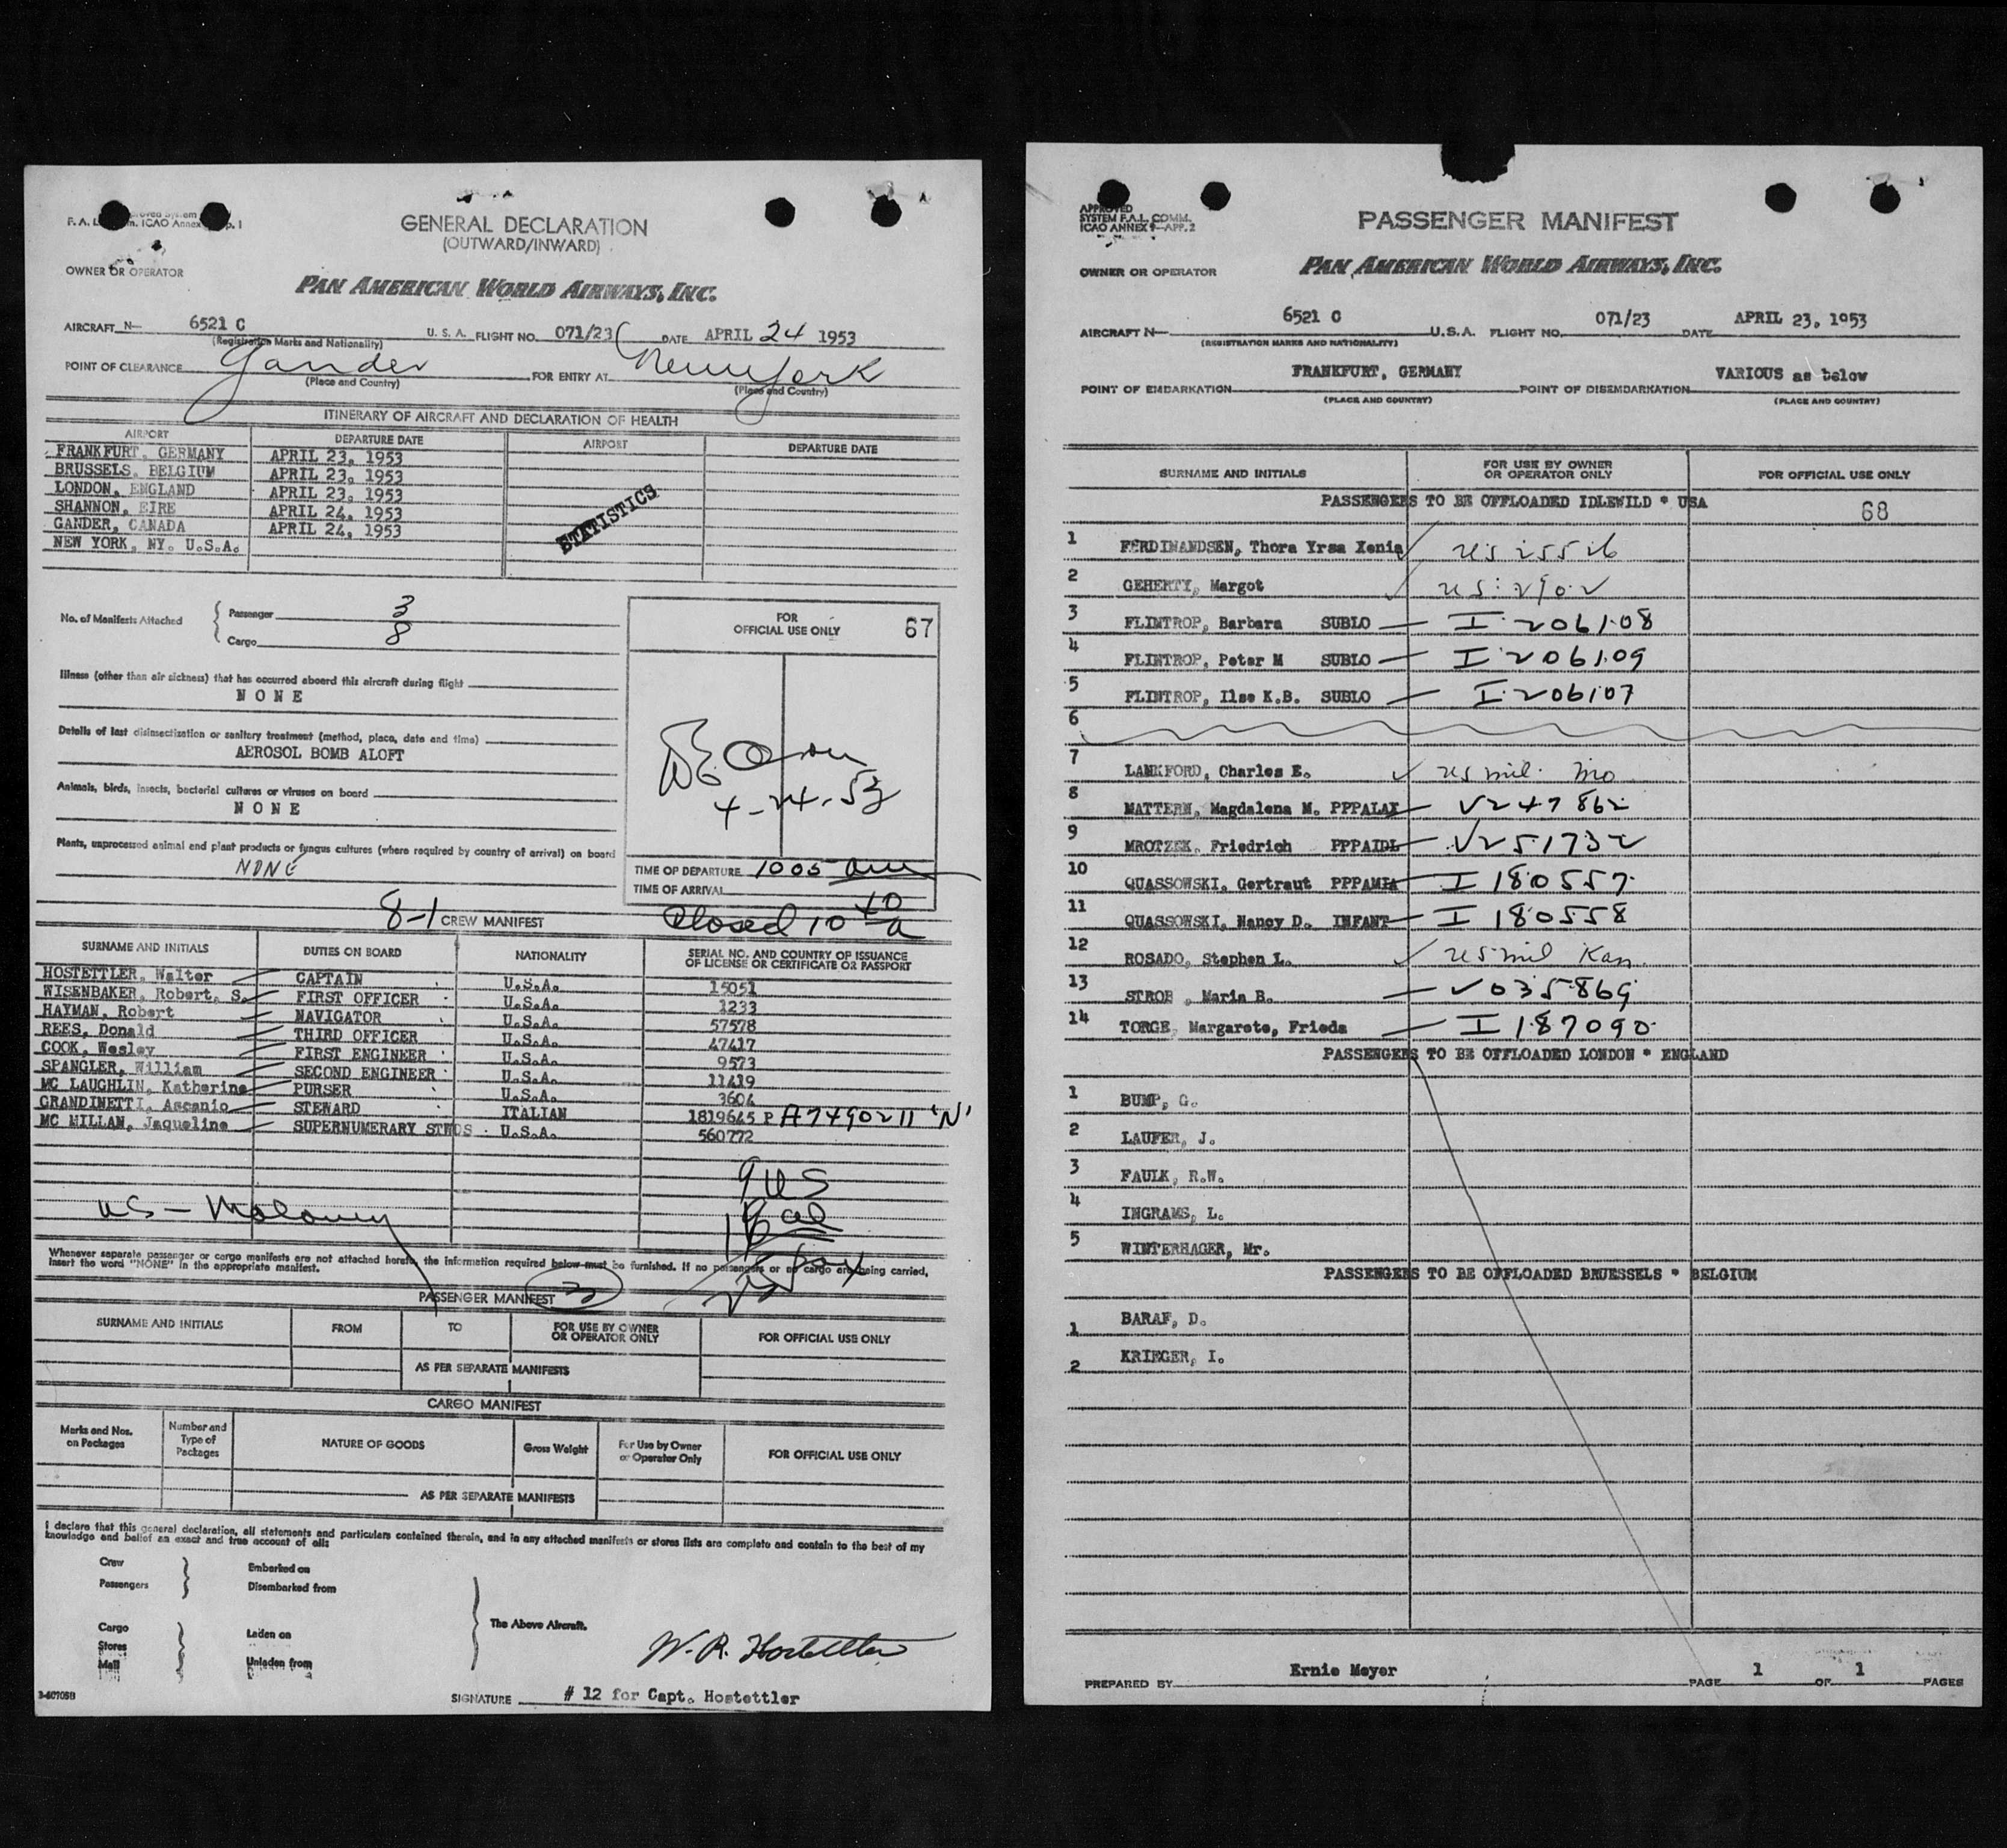 GENERAL DECLARATION
(OUTWARD/INWARD)
OWNER OR OPERATOR
PAN AMERICAN WORLD AIRWAYS, INC.
AIRCRAFT N— 6521 C U. S. A. FLIGHT NO. 071/23 DATE APRIL 24 1953
(Registration Marks and Nationality)
POINT OF CLEARANCE Gander FOR ENTRY AT New York
(Place and Country) (Place and Country)
ITINERARY OF AIRCRAFT AND DECLARATION OF HEALTH
AIRPORT DEPARTURE DATE AIRPORT DEPARTURE DATE
FRANKFURT, GERMANY APRIL 23, 1953
BRUSSELS, BELGIUM APRIL 23, 1953
LONDON, ENGLAND APRIL 23, 1953
SHANNON, EIRE APRIL 24, 1953
GANDER, CANADA APRIL 24, 1953
NEW YORK, NY. U.S.A.
STATISTICS
No. of Manifests Attached
Passenger 3
Cargo 8
FOR
OFFICIAL USE ONLY 67
Illness (other than air sickness) that has occurred aboard this aircraft during flight
NONE
Details of last disinsectization or sanitary treatment (method, place, date and time)
AEROSOL BOMB ALOFT
Animals, birds, insects, bacterial cultures or viruses on board
NONE
Plants, unprocessed animal and plant products or fungus cultures (where required by country of arrival) on board
NONE
4-24-53
TIME OF DEPARTURE 1005 am
TIME OF ARRIVAL
Closed 10 40 a
8-1 CREW MANIFEST
SURNAME AND INITIALS DUTIES ON BOARD NATIONALITY SERIAL NO. AND COUNTRY OF ISSUANCE OF LICENSE OR CERTIFICATE OR PASSPORT
HOSTETTLER, Walter CAPTAIN U.S.A. 15051
WISENBAKER, Robert, S. FIRST OFFICER U.S.A. 1233
HAYMAN, Robert NAVIGATOR U.S.A. 57578
REES, Donald THIRD OFFICER U.S.A. 47417
COOK, Wesley FIRST ENGINEER U.S.A. 9573
SPANGLER, William SECOND ENGINEER U.S.A. 11419
MC LAUGHLIN, Katherine PURSER U.S.A. 3604
GRANDINETTI, Ascanio STEWARD ITALIAN 1819645 P A7490211 'N'
MC MILLAN, Jaqueline SUPERNUMERARY STWDS U.S.A. 560772
9 US
US — Moloney
Whenever separate passenger or cargo manifests are not attached hereto, the information required below must be furnished. If no passengers or no cargo are being carried,
insert the word "NONE" in the appropriate manifest.
PASSENGER MANIFEST
SURNAME AND INITIALS FROM TO FOR USE BY OWNER OR OPERATOR ONLY FOR OFFICIAL USE ONLY
AS PER SEPARATE MANIFESTS
CARGO MANIFEST
Marks and Nos. on Packages Number and Type of Packages NATURE OF GOODS Gross Weight For Use by Owner or Operator Only FOR OFFICIAL USE ONLY
AS PER SEPARATE MANIFESTS
I declare that this general declaration, all statements and particulars contained therein, and in any attached manifests or stores lists are complete and contain to the best of my
knowledge and belief an exact and true account of all:
Crew Embarked on
Passengers Disembarked from
The Above Aircraft.
Cargo Laden on
Stores
Mail Unladen from
W. R. Hostettler
SIGNATURE # 12 for Capt. Hostettler
APPROVED
SYSTEM F.A.L. COMM.
ICAO ANNEX 9—APP. 2
PASSENGER MANIFEST
OWNER OR OPERATOR
PAN AMERICAN WORLD AIRWAYS, INC.
AIRCRAFT N— 6521 C U.S.A. FLIGHT NO. 071/23 DATE APRIL 23, 1953
(REGISTRATION MARKS AND NATIONALITY)
POINT OF EMBARKATION FRANKFURT, GERMANY POINT OF DISEMBARKATION VARIOUS as below
(PLACE AND COUNTRY) (PLACE AND COUNTRY)
SURNAME AND INITIALS FOR USE BY OWNER OR OPERATOR ONLY FOR OFFICIAL USE ONLY
PASSENGERS TO BE OFFLOADED IDLEWILD * USA
68
1 FERDINANDSEN, Thora Yrsa Xenia US 25526
2 GEHERTY, Margot US 2902
3 FLINTROP, Barbara SUBLO I 206108
4 FLINTROP, Peter M SUBLO I 206109
5 FLINTROP, Ilse K.B. SUBLO I 206107
6
7 LANKFORD, Charles E. US mil. Mo
8 MATTERN, Magdalena M. PPPALAX V247862
9 MROTZEK, Friedrich PPPAIDL V251732
10 QUASSOWSKI, Gertraut PPPAMIA I 180557
11 QUASSOWSKI, Nancy D. INFANT I 180558
12 ROSADO, Stephen L. US mil Kan
13 STROB, Maria B. V035869
14 TORGE, Margarete, Frieda I 187090
PASSENGERS TO BE OFFLOADED LONDON * ENGLAND
1 BUMP, G.
2 LAUFER, J.
3 FAULK, R.W.
4 INGRAMS, L.
5 WINTERHAGER, Mr.
PASSENGERS TO BE OFFLOADED BRUESSELS * BELGIUM
1 BARAF, D.
2 KRIEGER, I.
PREPARED BY Ernie Meyer PAGE 1 OF 1 PAGES